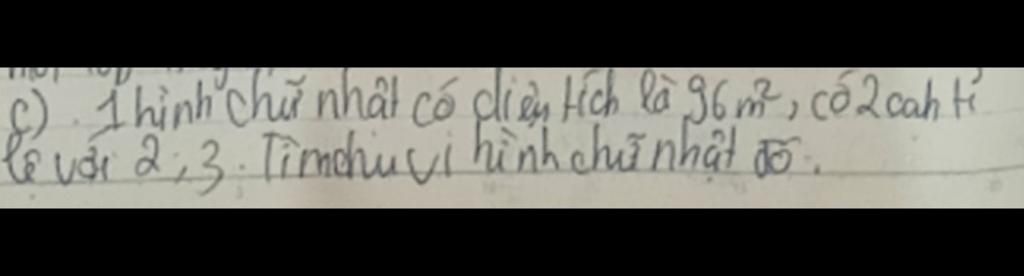 c). 1 hình chữ nhật có diện tích là 96 m², có 2 cah tỉ
lệ với 2; 3. Tìm chu vi hình chữ nhật đó.